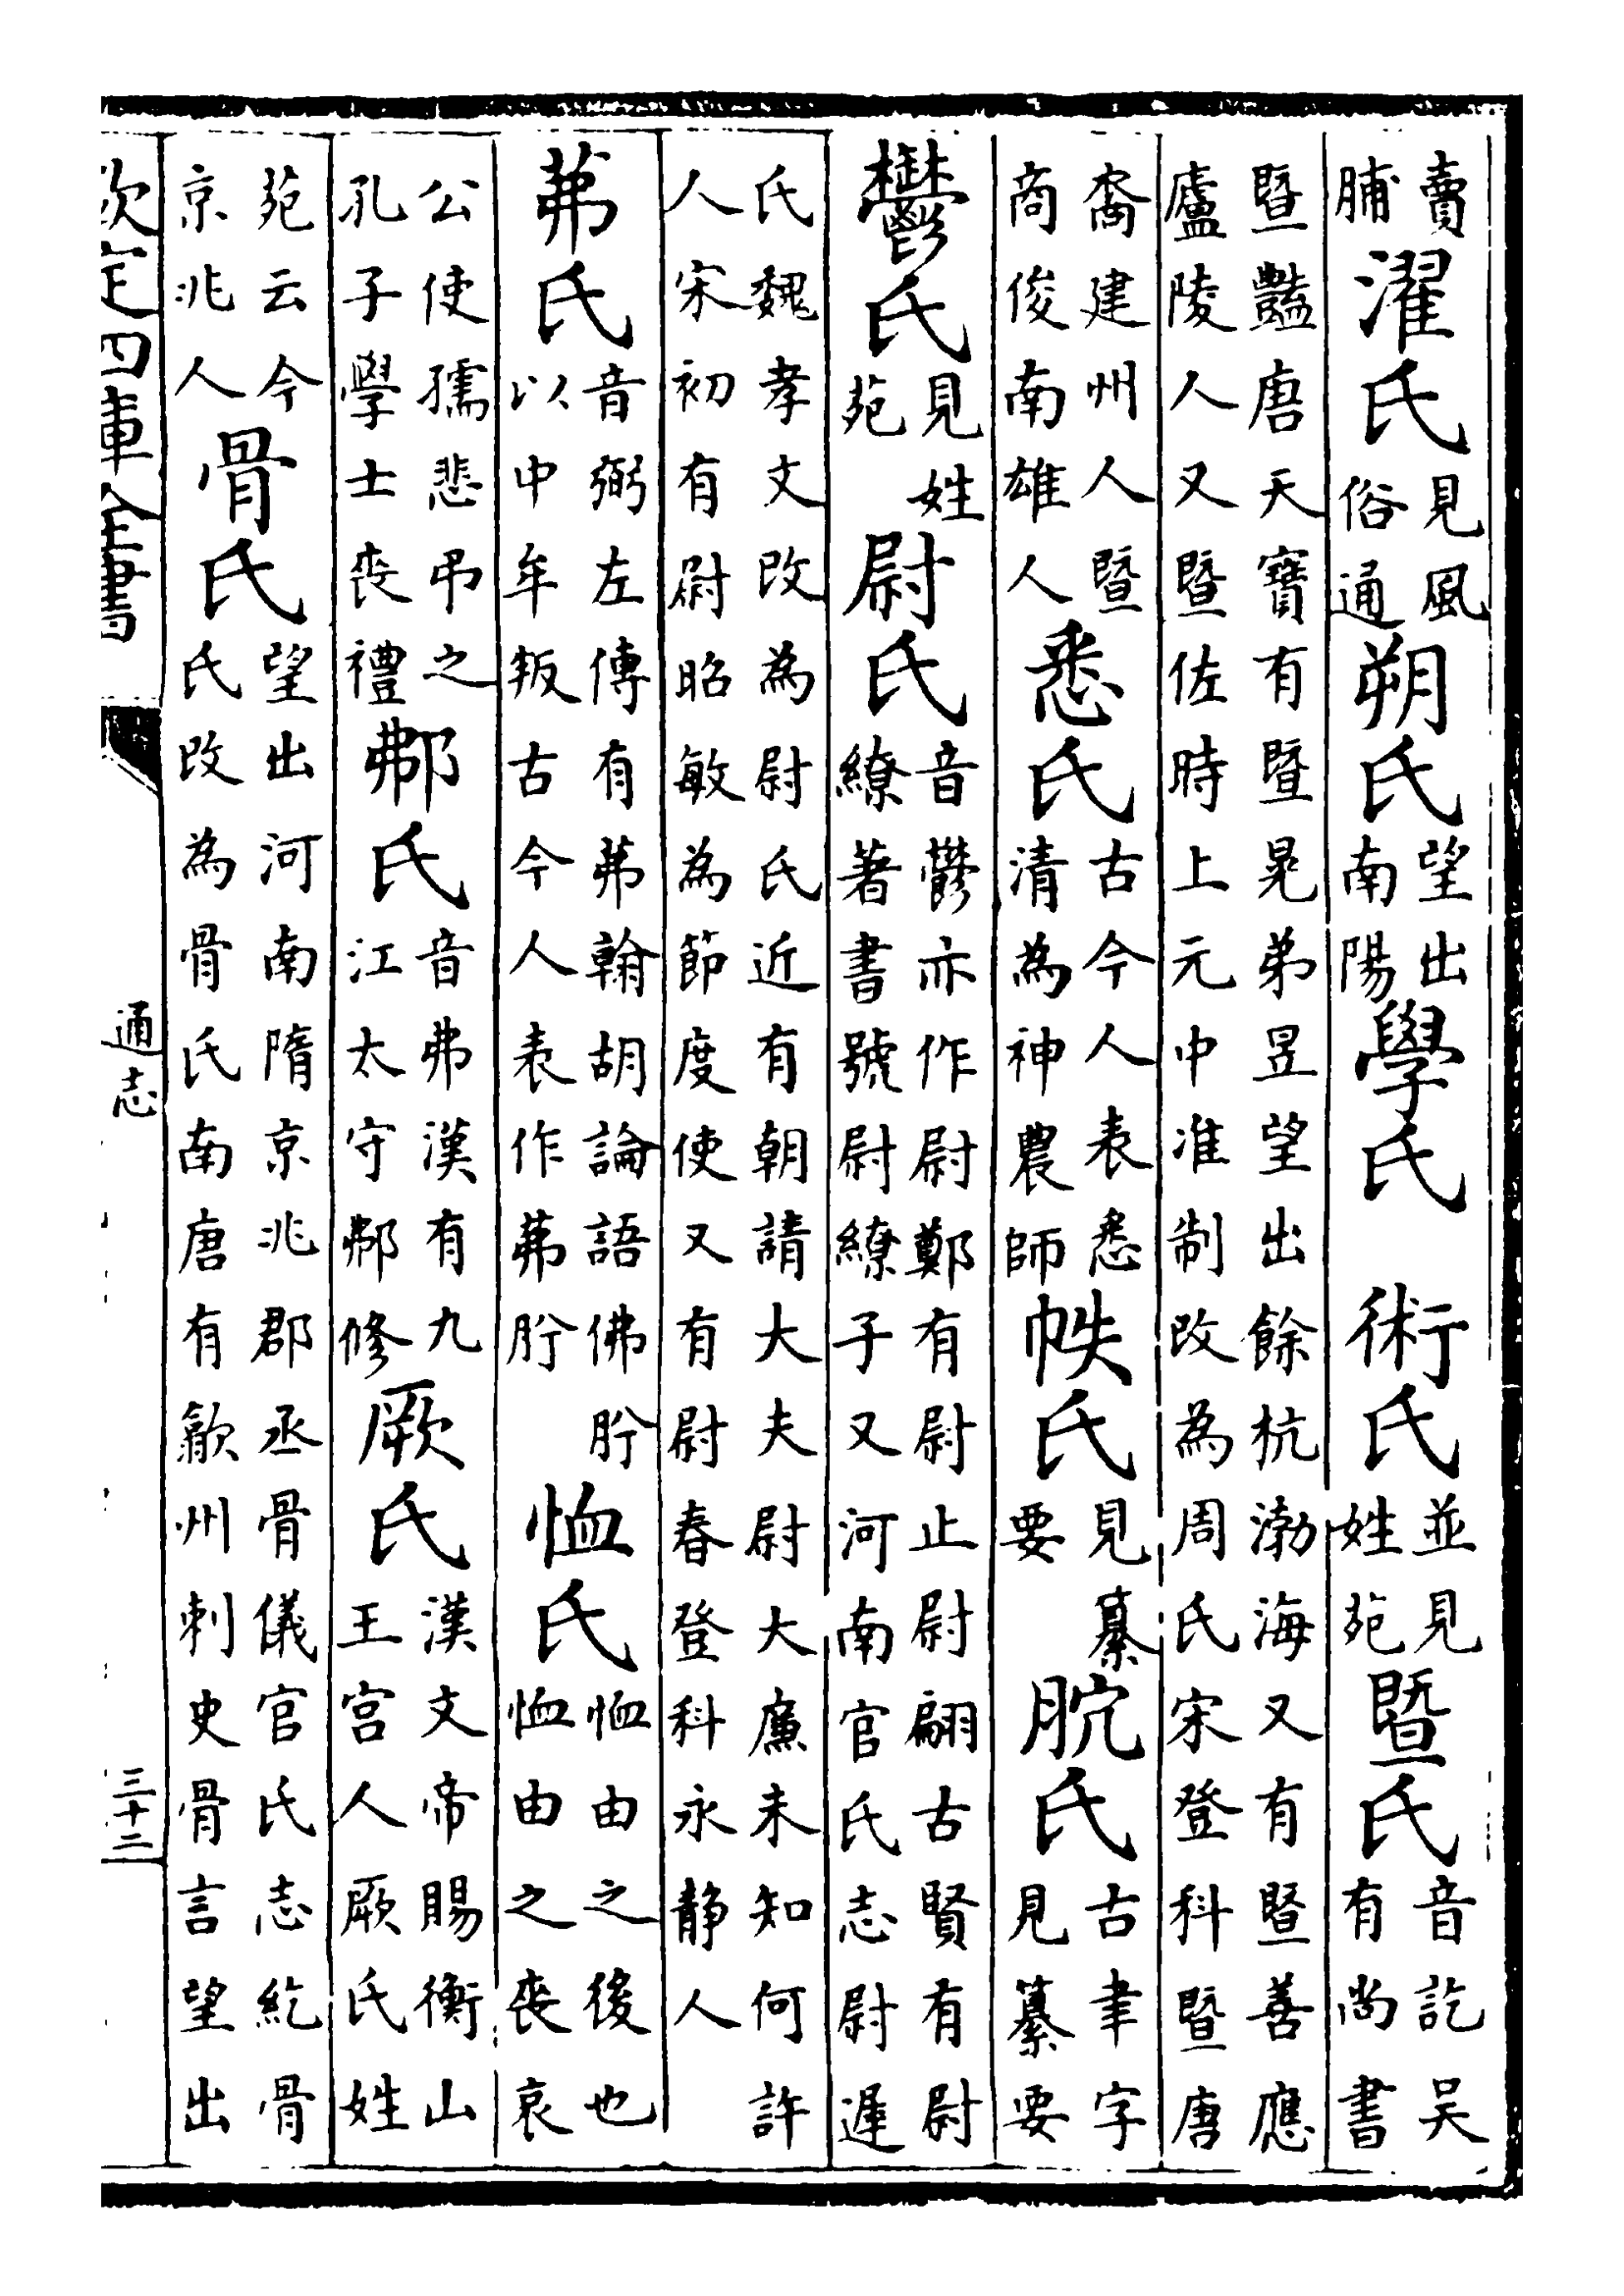 賣脯濯氏見風俗通朔氏望出南陽學氏 術氏並見姓苑暨氏音訖吴有尚書
暨豔唐天寶有暨晃弟昱望出餘杭渤海又有暨善應
廬陵人又暨佐時上元中准制改為周氏宋登科暨唐
裔建州人暨商俊南雄人悉氏古今人表悉清為神農師帙氏見纂要脘氏古聿字見纂要
鬱氏見姓苑尉氏音鬱亦作尉鄭有尉止尉翩古賢有尉繚著書號尉繚子又河南官氏志尉遲
氏魏孝文改為尉氏近有朝請大夫尉大廉未知何許
人宋初有尉昭敏為節度使又有尉春登科永静人
茀氏音弼左傳有茀翰胡論語佛肹以中牟叛古今人表作茀肹恤氏恤由之後也恤由之喪哀
公使孺悲弔之孔子學士喪禮氏音弗漢有九江太守修厥氏漢文帝賜衡山王宫人厥氏姓
苑云今京兆人骨氏望出河南隋京兆郡丞骨儀官氏志紇骨氏改為骨氏南唐有歙州刺史骨言望出
欽定四庫全書
通志
三十二